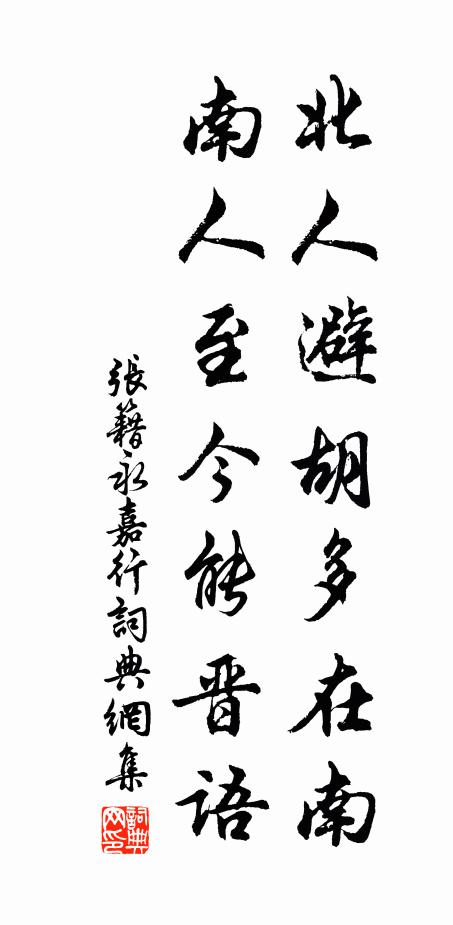 北人避胡多在南
南人至今能晋語
張籍永嘉行詞典網集
詞典网印